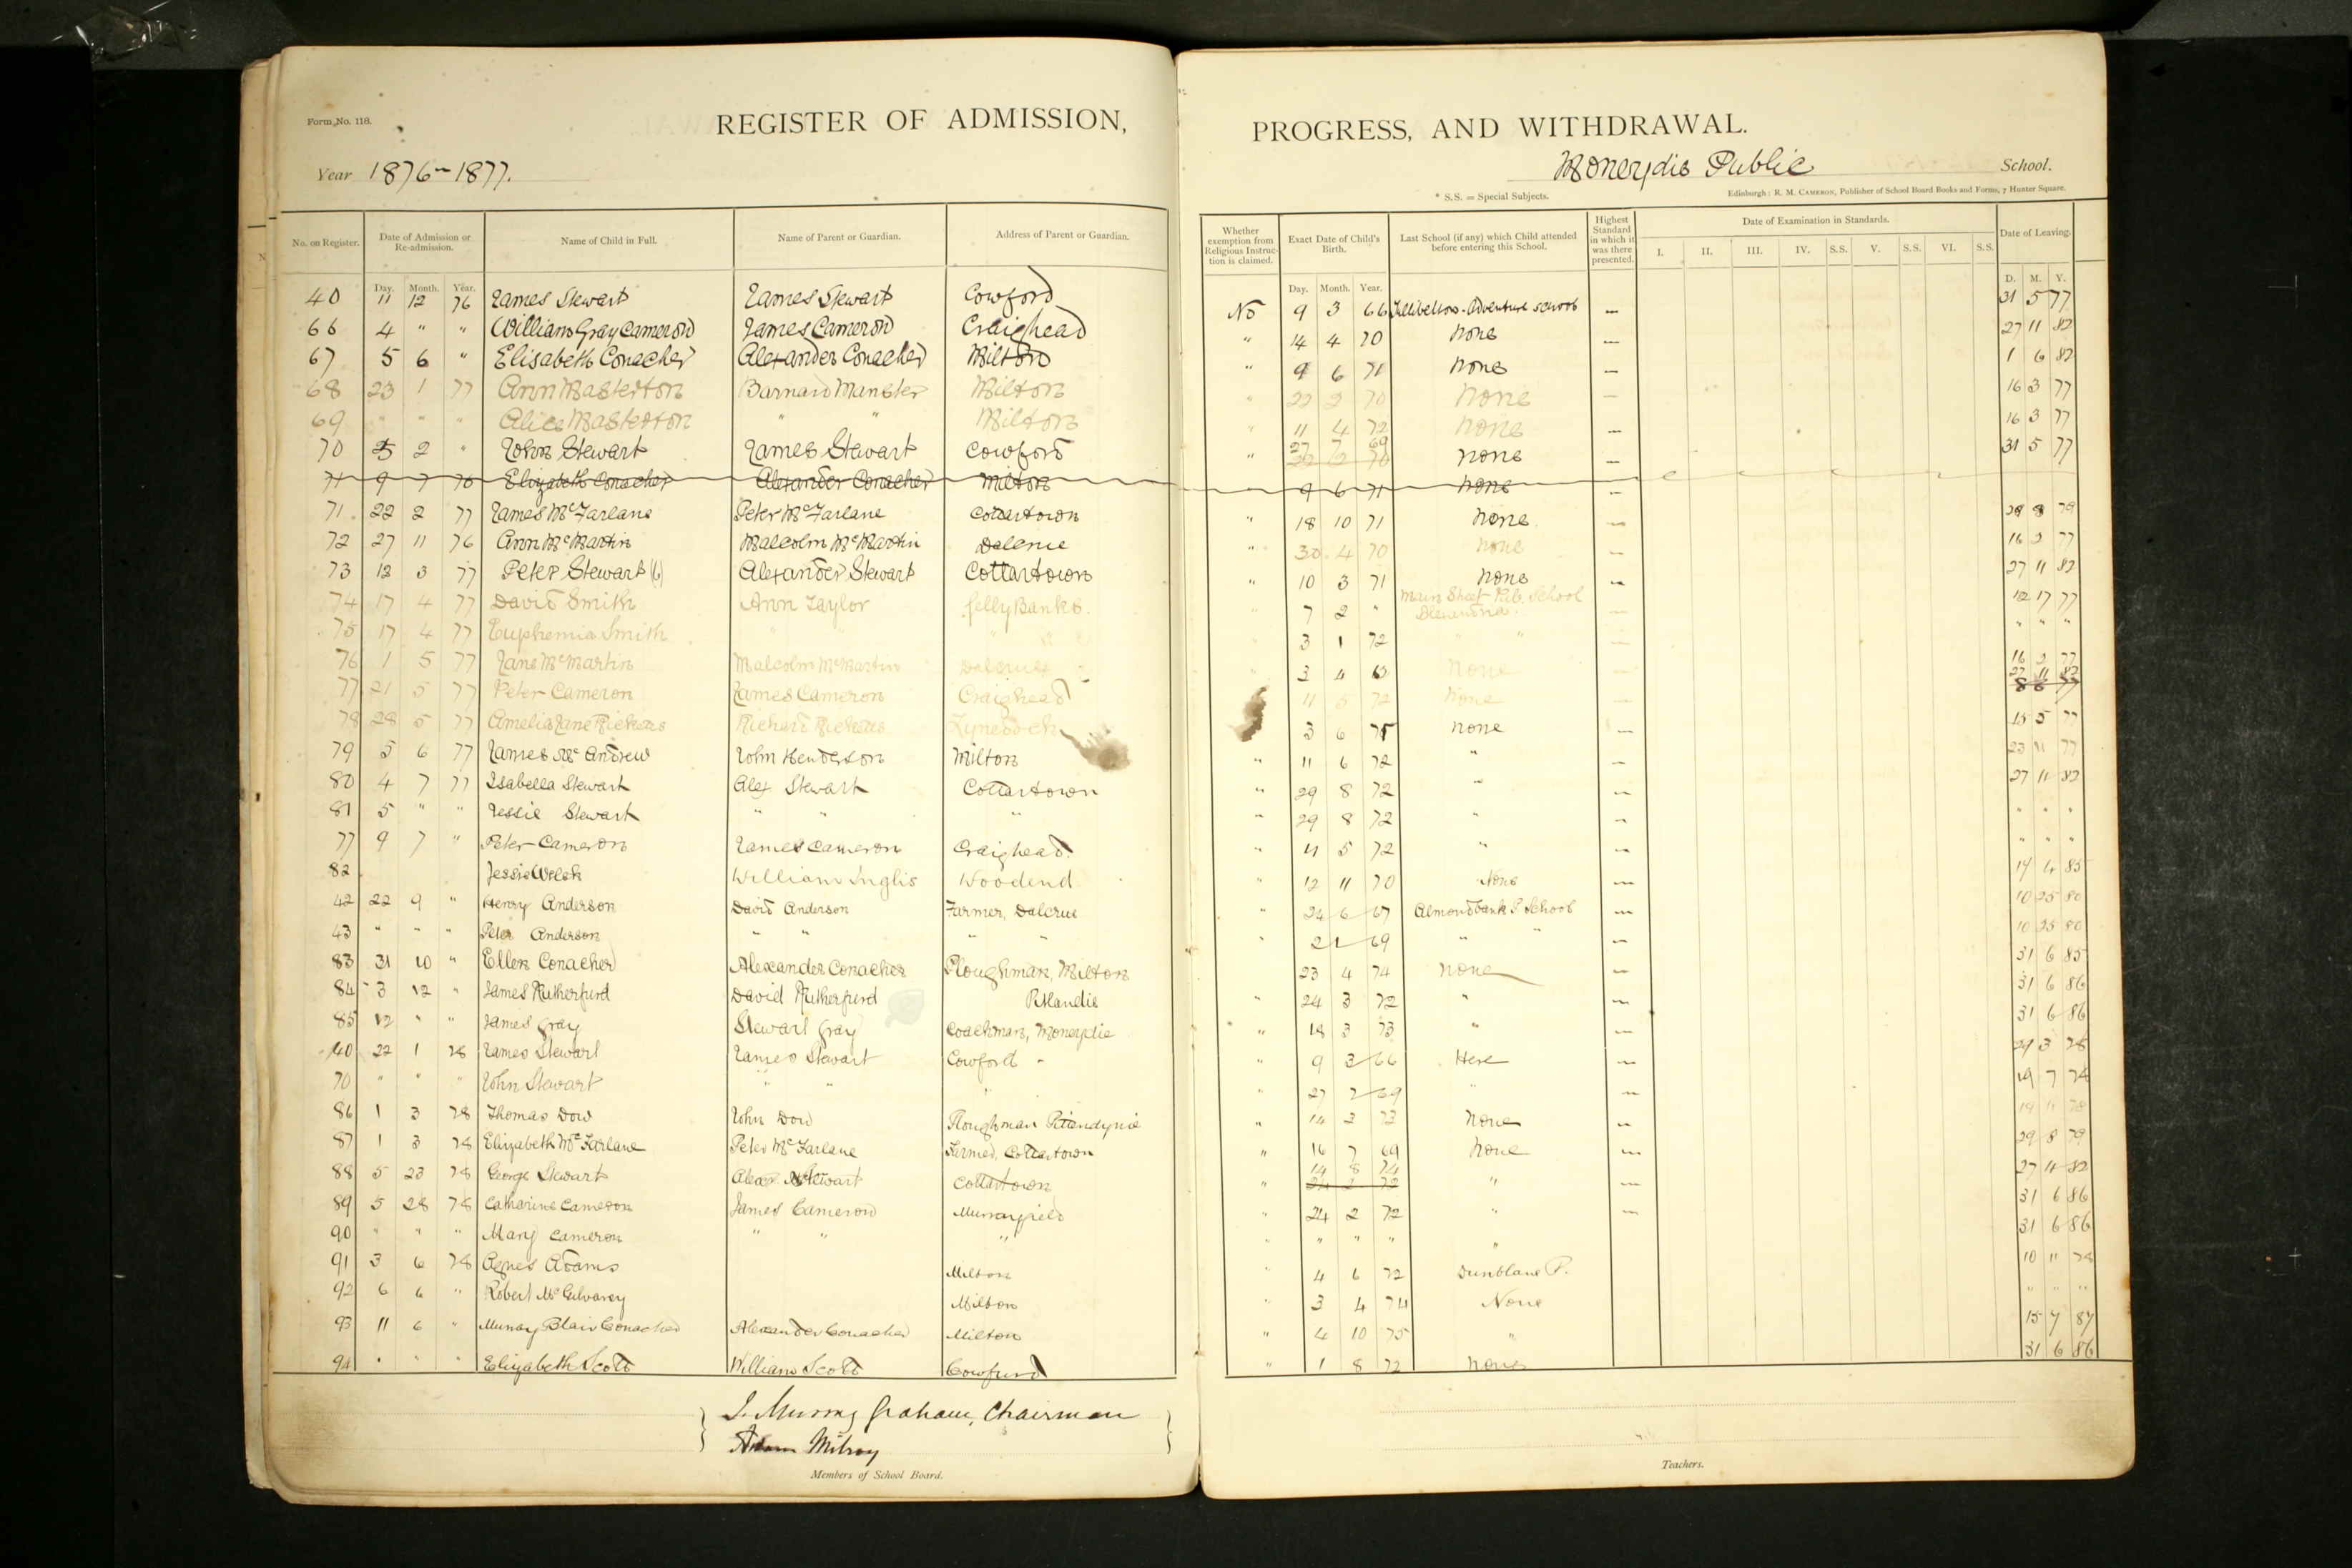 Form No. 118.
REGISTER OF ADMISSION, PROGRESS, AND WITHDRAWAL.
Year 1876-1877.
Moneydie Public School.
* S.S. = Special Subjects.
Edinburgh: R. M. CAMERON, Publisher of School Board Books and Forms, 7 Hunter Square.
No. on Register. Date of Admission or Re-admission. Name of Child in Full. Name of Parent or Guardian. Address of Parent or Guardian. Whether exemption from Religious Instruction is claimed. Exact Date of Child's Birth. Last School (if any) which Child attended before entering this School. Highest Standard in which it was there presented. Date of Examination in Standards. Date of Leaving.
I. II. III. IV. S.S. V. S.S. VI. S.S.
Day. Month. Year. Day. Month. Year. D. M. Y.
40 11 12 76 James Stewart James Stewart Cowford No 9 3 66 Tullibelton-Adventure School — 31 5 77
66 4 " " William Gray Cameron James Cameron Craighead " 14 4 70 None — 27 11 82
67 5 6 " Elisabeth Conacher Alexander Conacher Milton " 9 6 71 None — 1 6 82
68 23 1 77 Ann Masterton Barnard Manster Milton " 22 2 70 None — 16 3 77
69 " " " Alice Masterton " " Milton " 11 4 72 None — 16 3 77
70 5 2 " John Stewart James Stewart Cowford " 27 7 69 None — 31 5 77
71 9 7 76 Elizabeth Conacher Alexander Conacher Milton 9 6 71 None —
71 22 2 77 James McFarlane Peter McFarlane Cottartown " 18 10 71 None — 28 8 79
72 27 11 76 Ann McMartin Malcolm McMartin Dalcrue " 30 4 70 None — 16 2 77
73 12 3 77 Peter Stewart (6) Alexander Stewart Cottartown " 10 3 71 None — 27 11 82
74 17 4 77 David Smith Ann Taylor Jelly Banks. 7 2 " Main Street Pub. School Alexandria. — 12 17 77
75 17 4 77 Euphemia Smith " " " 3 1 72 " " — " " "
76 1 5 77 Jane McMartin Malcolm McMartin Dalcrue 3 4 None — 16 2 77
77 21 5 77 Peter Cameron James Cameron Craighead 11 5 72 None — 27 11 82
78 28 5 77 Amelia Jane Ricketts Richard Ricketts Lynedoch 3 6 75 None — 15 5 77
79 5 6 77 James McAndrew John Henderson Milton " 11 6 72 " — 23 11 77
80 4 7 77 Isabella Stewart Alex Stewart Cottartown " 29 8 72 " — 27 11 82
81 5 " " Jessie Stewart " " " " 29 8 72 " — " " "
77 9 7 " Peter Cameron James Cameron Craighead. " 11 5 72 " — " " "
82 Jessie Welsh William Inglis Woodend " 12 11 70 None — 17 4 85
42 22 9 " Henry Anderson David Anderson Farmer, Dalcrue " 24 6 67 Almondbank P. School — 10 25 80
43 " " " Peter Anderson " " " " " 2 1 69 " " — 10 25 80
83 31 10 " Ellen Conacher Alexander Conacher Ploughman, Milton 23 4 74 None — 31 6 85
84 3 12 " James Rutherfurd David Rutherfurd Pitlandie " 24 3 72 " — 31 6 86
85 12 " " James Gray Stewart Gray Coachman, Moneydie " 18 3 73 " — 31 6 86
40 22 1 78 James Stewart James Stewart Cowford " 9 3 66 Here — 29 3 78
70 " " " John Stewart " " " " 27 7 69 " — 19 7 78
86 1 3 78 Thomas Dow John Dow Ploughman Pitendynie " 14 3 73 None — 19 11 78
87 1 3 78 Elizabeth McFarlane Peter McFarlane Farmer, Cottartown " 16 7 69 None — 29 8 79
88 5 23 78 George Stewart Alexr. Stewart Cottartown " 14 8 74 " — 27 11 82
89 5 28 78 Catharine Cameron James Cameron Murrayfield " 24 2 72 " — 31 6 86
90 " " " Mary Cameron " " " " " " " " 31 6 86
91 3 6 78 Agnes Adams Milton " 4 6 72 Dunblane P. 10 11 78
92 6 6 " Robert McGilvarey Milton " 3 4 74 None " " "
93 11 6 " Murray Blair Conacher Alexander Conacher Milton " 4 10 75 " 15 7 87
94 " " " Elizabeth Scott William Scott Cowfurd " 1 8 72 None 31 6 86
J. Murray Graham, Chairman
Adam Milroy
Members of School Board.
Teachers.